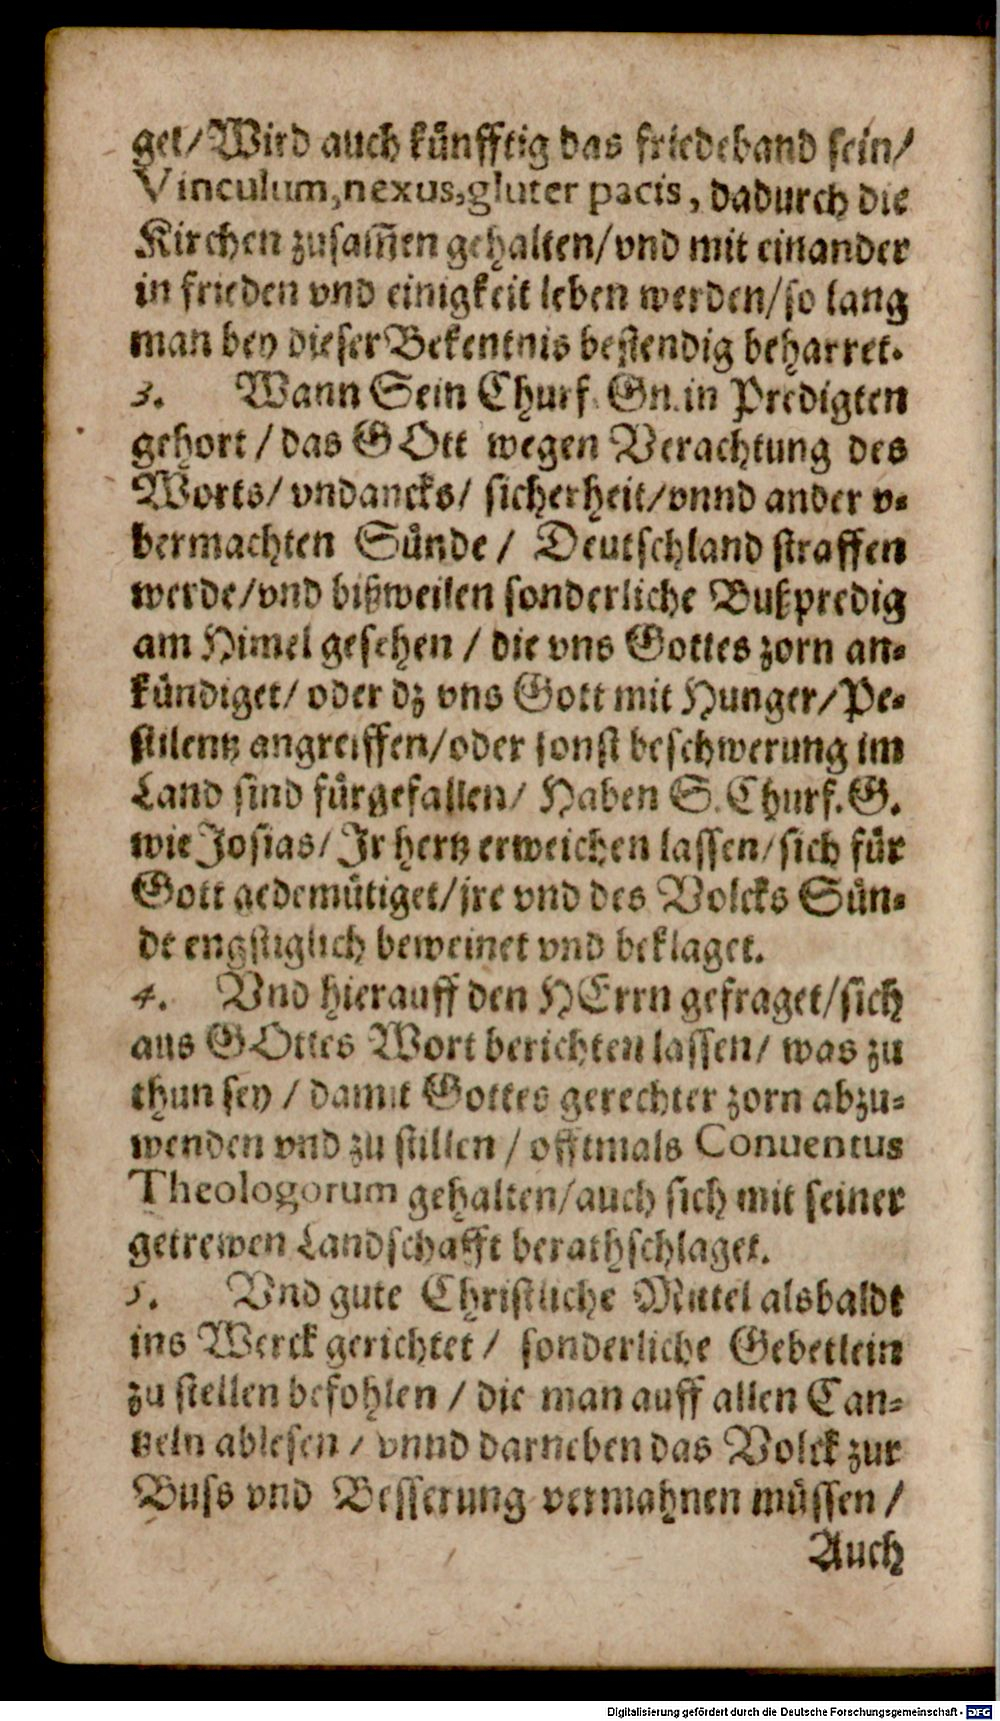 get/ Wird auch künfftig das friedeband sein/
Vinculum, nexus, gluter pacis, dadurch die
Kirchen zusam̃en gehalten/ vnd mit einander
in frieden vnd einigkeit leben werden/ so lang
man bey dieser Bekentnis bestendig beharret.
3. Wann Sein Churf. Gn. in Predigten
gehort / das GOtt wegen Verachtung des
Worts/ vndancks/ sicherheit/ vnnd ander v-
bermachten Sünde / Deutschland straffen
werde/ vnd bißweilen sonderliche Bußpredig
am Himel gesehen / die vns Gottes zorn an-
kündiget/ oder dz vns Gott mit Hunger/ Pe-
stilentz angreiffen/ oder sonst beschwerung im
Land sind fürgefallen/ Haben S. Churf. G.
wie Josias/ Jr hertz erweichen lassen/ sich für
Gott gedemütiget/ jre vnd des Volcks Sün-
de engstiglich beweinet vnd beklaget.
4. Vnd hierauff den HErrn gefraget/ sich
aus GOttes Wort berichten lassen/ was zu
thun sey / damit Gottes gerechter zorn abzu-
wenden vnd zu stillen / offtmals Conuentus
Theologorum gehalten/ auch sich mit seiner
getrewen Landschafft berathschlaget.
5. Vnd gute Christliche Mittel alsbaldt
ins Werck gerichtet / sonderliche Gebetlein
zu stellen befohlen / die man auff allen Can-
tzeln ablesen / vnnd darneben das Volck zur
Buss vnd Besserung vermahnen müssen /
Auch
Digitalisierung gefördert durch die Deutsche Forschungsgemeinschaft - DFG